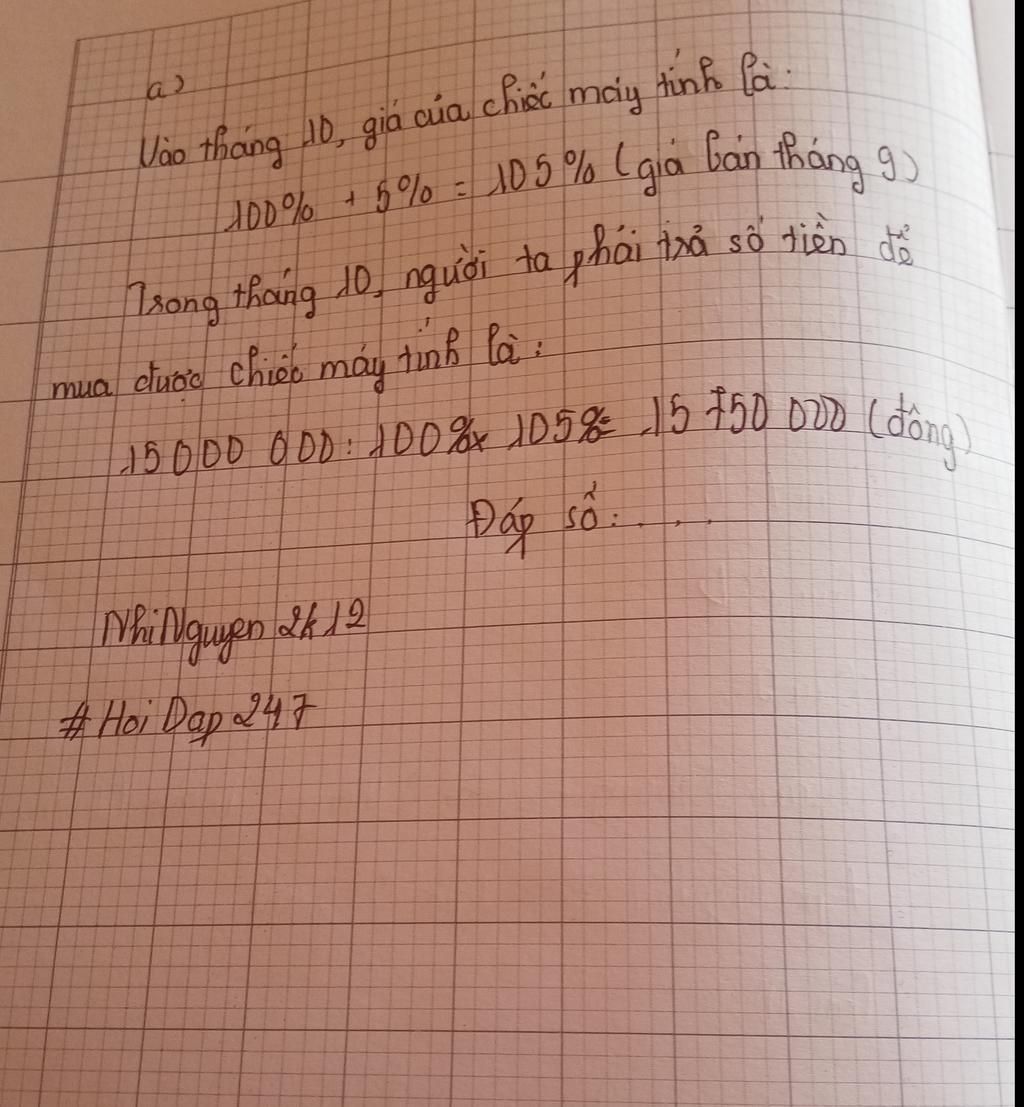 a)
Vào tháng 10, giá của chiếc máy tính là:
100% + 5% = 105% (giá bán tháng 9)
Trong tháng 10, người ta phải trả số tiền để
mua được chiếc máy tính là:
15 000 000 : 100% x 105% = 15 750 000 (đồng)
Đáp số: . . . .
NhiNguyen 2k12
# Hoi Dap 247